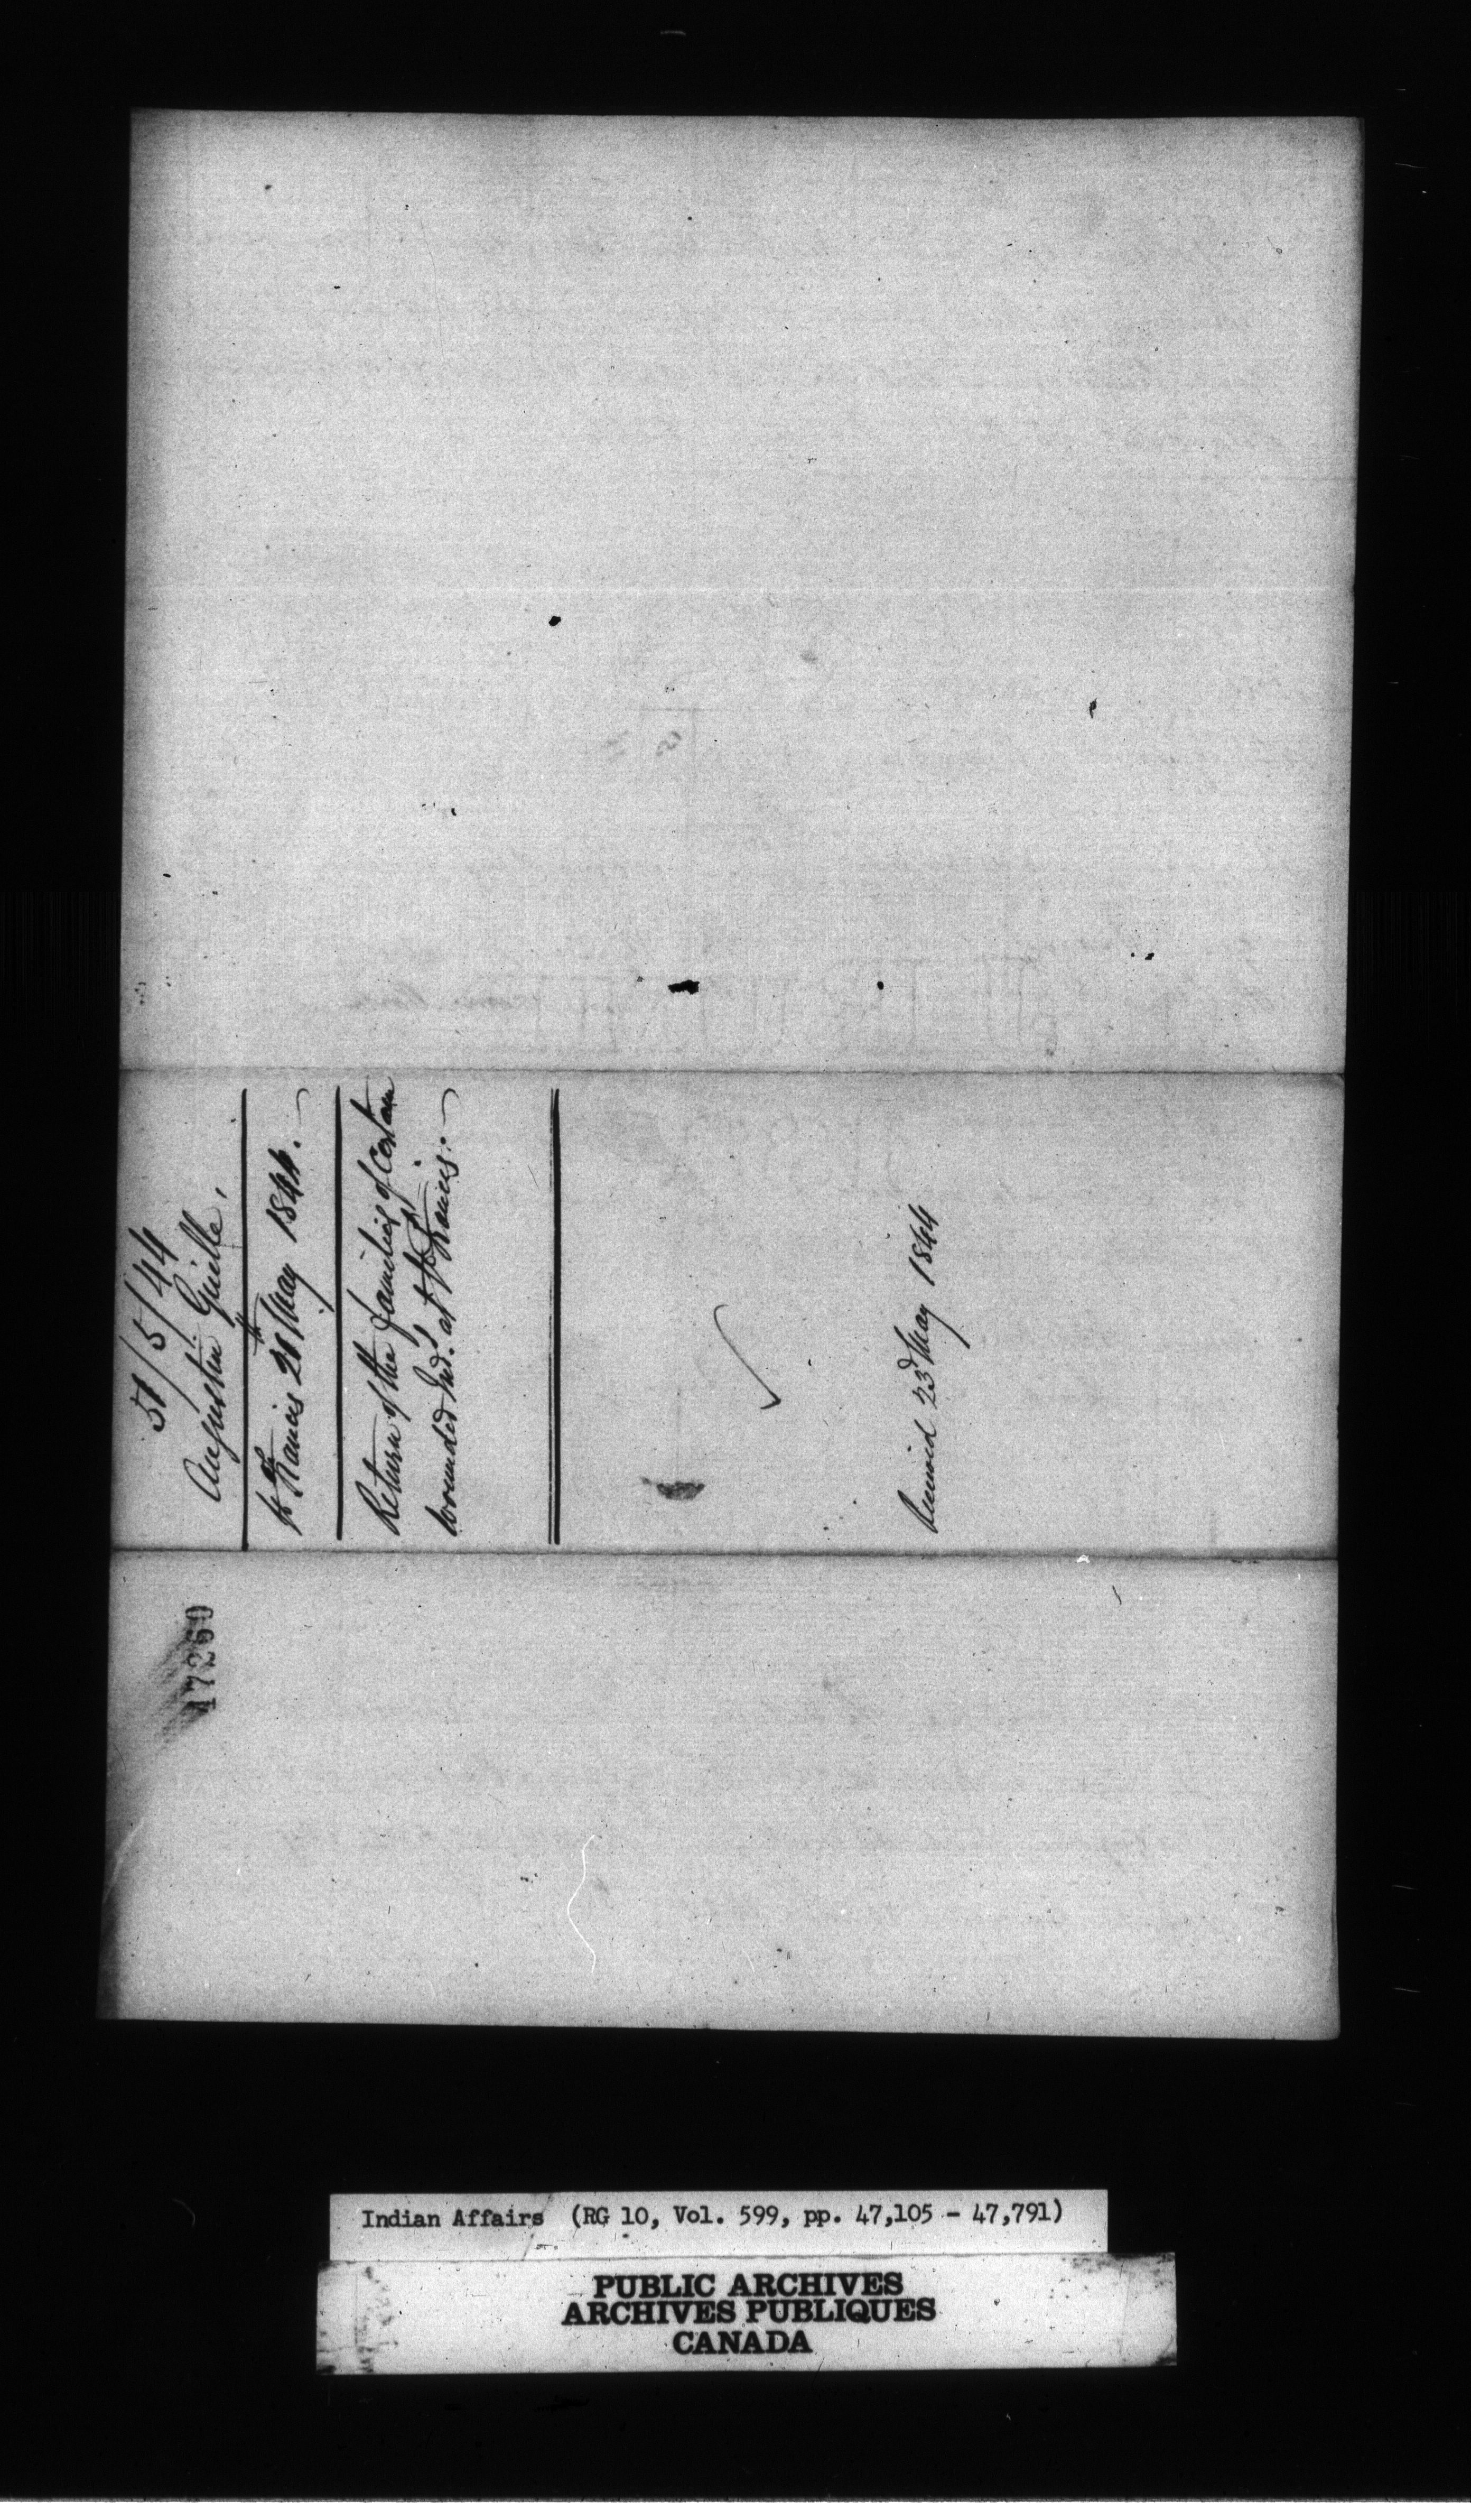 51/5/44
Augustin Guille,
St Francis 21st May 1844.
Return of the families of certain
wounded Inds. at St Francis.
Received 23d May 1844
47260
Indian Affairs (RG 10, Vol. 599, pp. 47,105 - 47,791)
PUBLIC ARCHIVES
ARCHIVES PUBLIQUES
CANADA